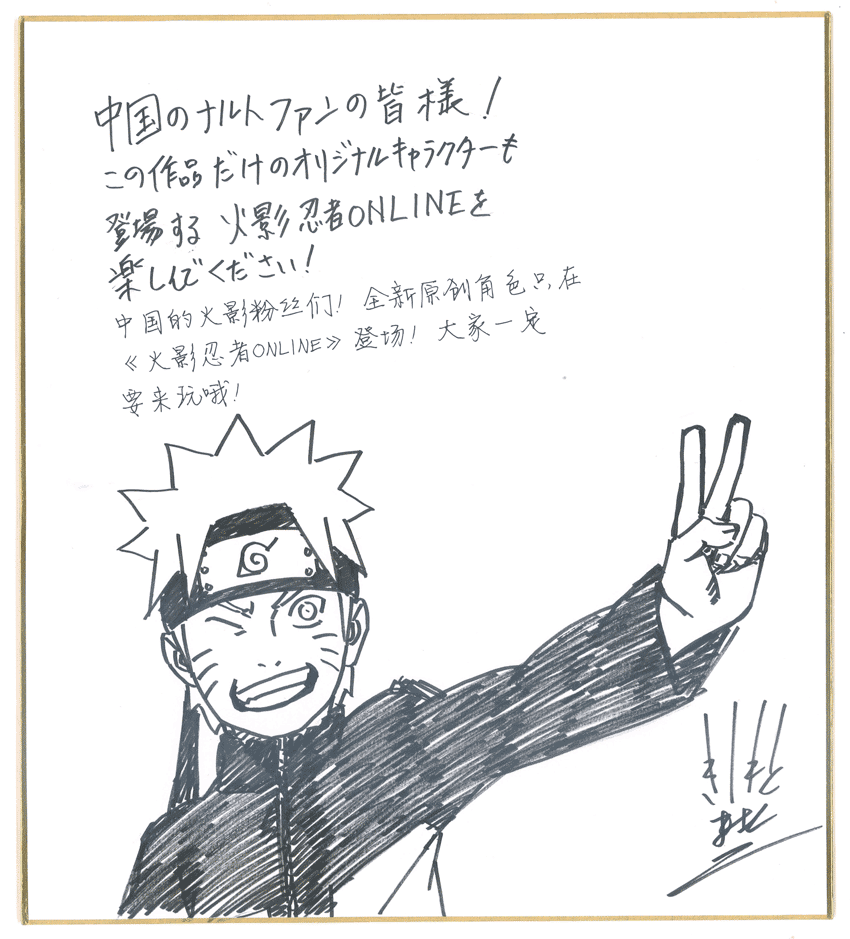 中国のナルトファンの皆様！
この作品だけのオリジナルキャラクターも
登場する 火影忍者ONLINEを
楽しんでください！
中国的火影粉丝们！ 全新原创角色只在
《火影忍者ONLINE》登场！ 大家一定
要来玩哦！